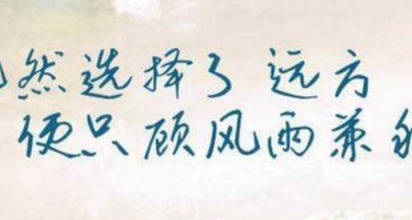 然选择了远方
便只顾风雨兼